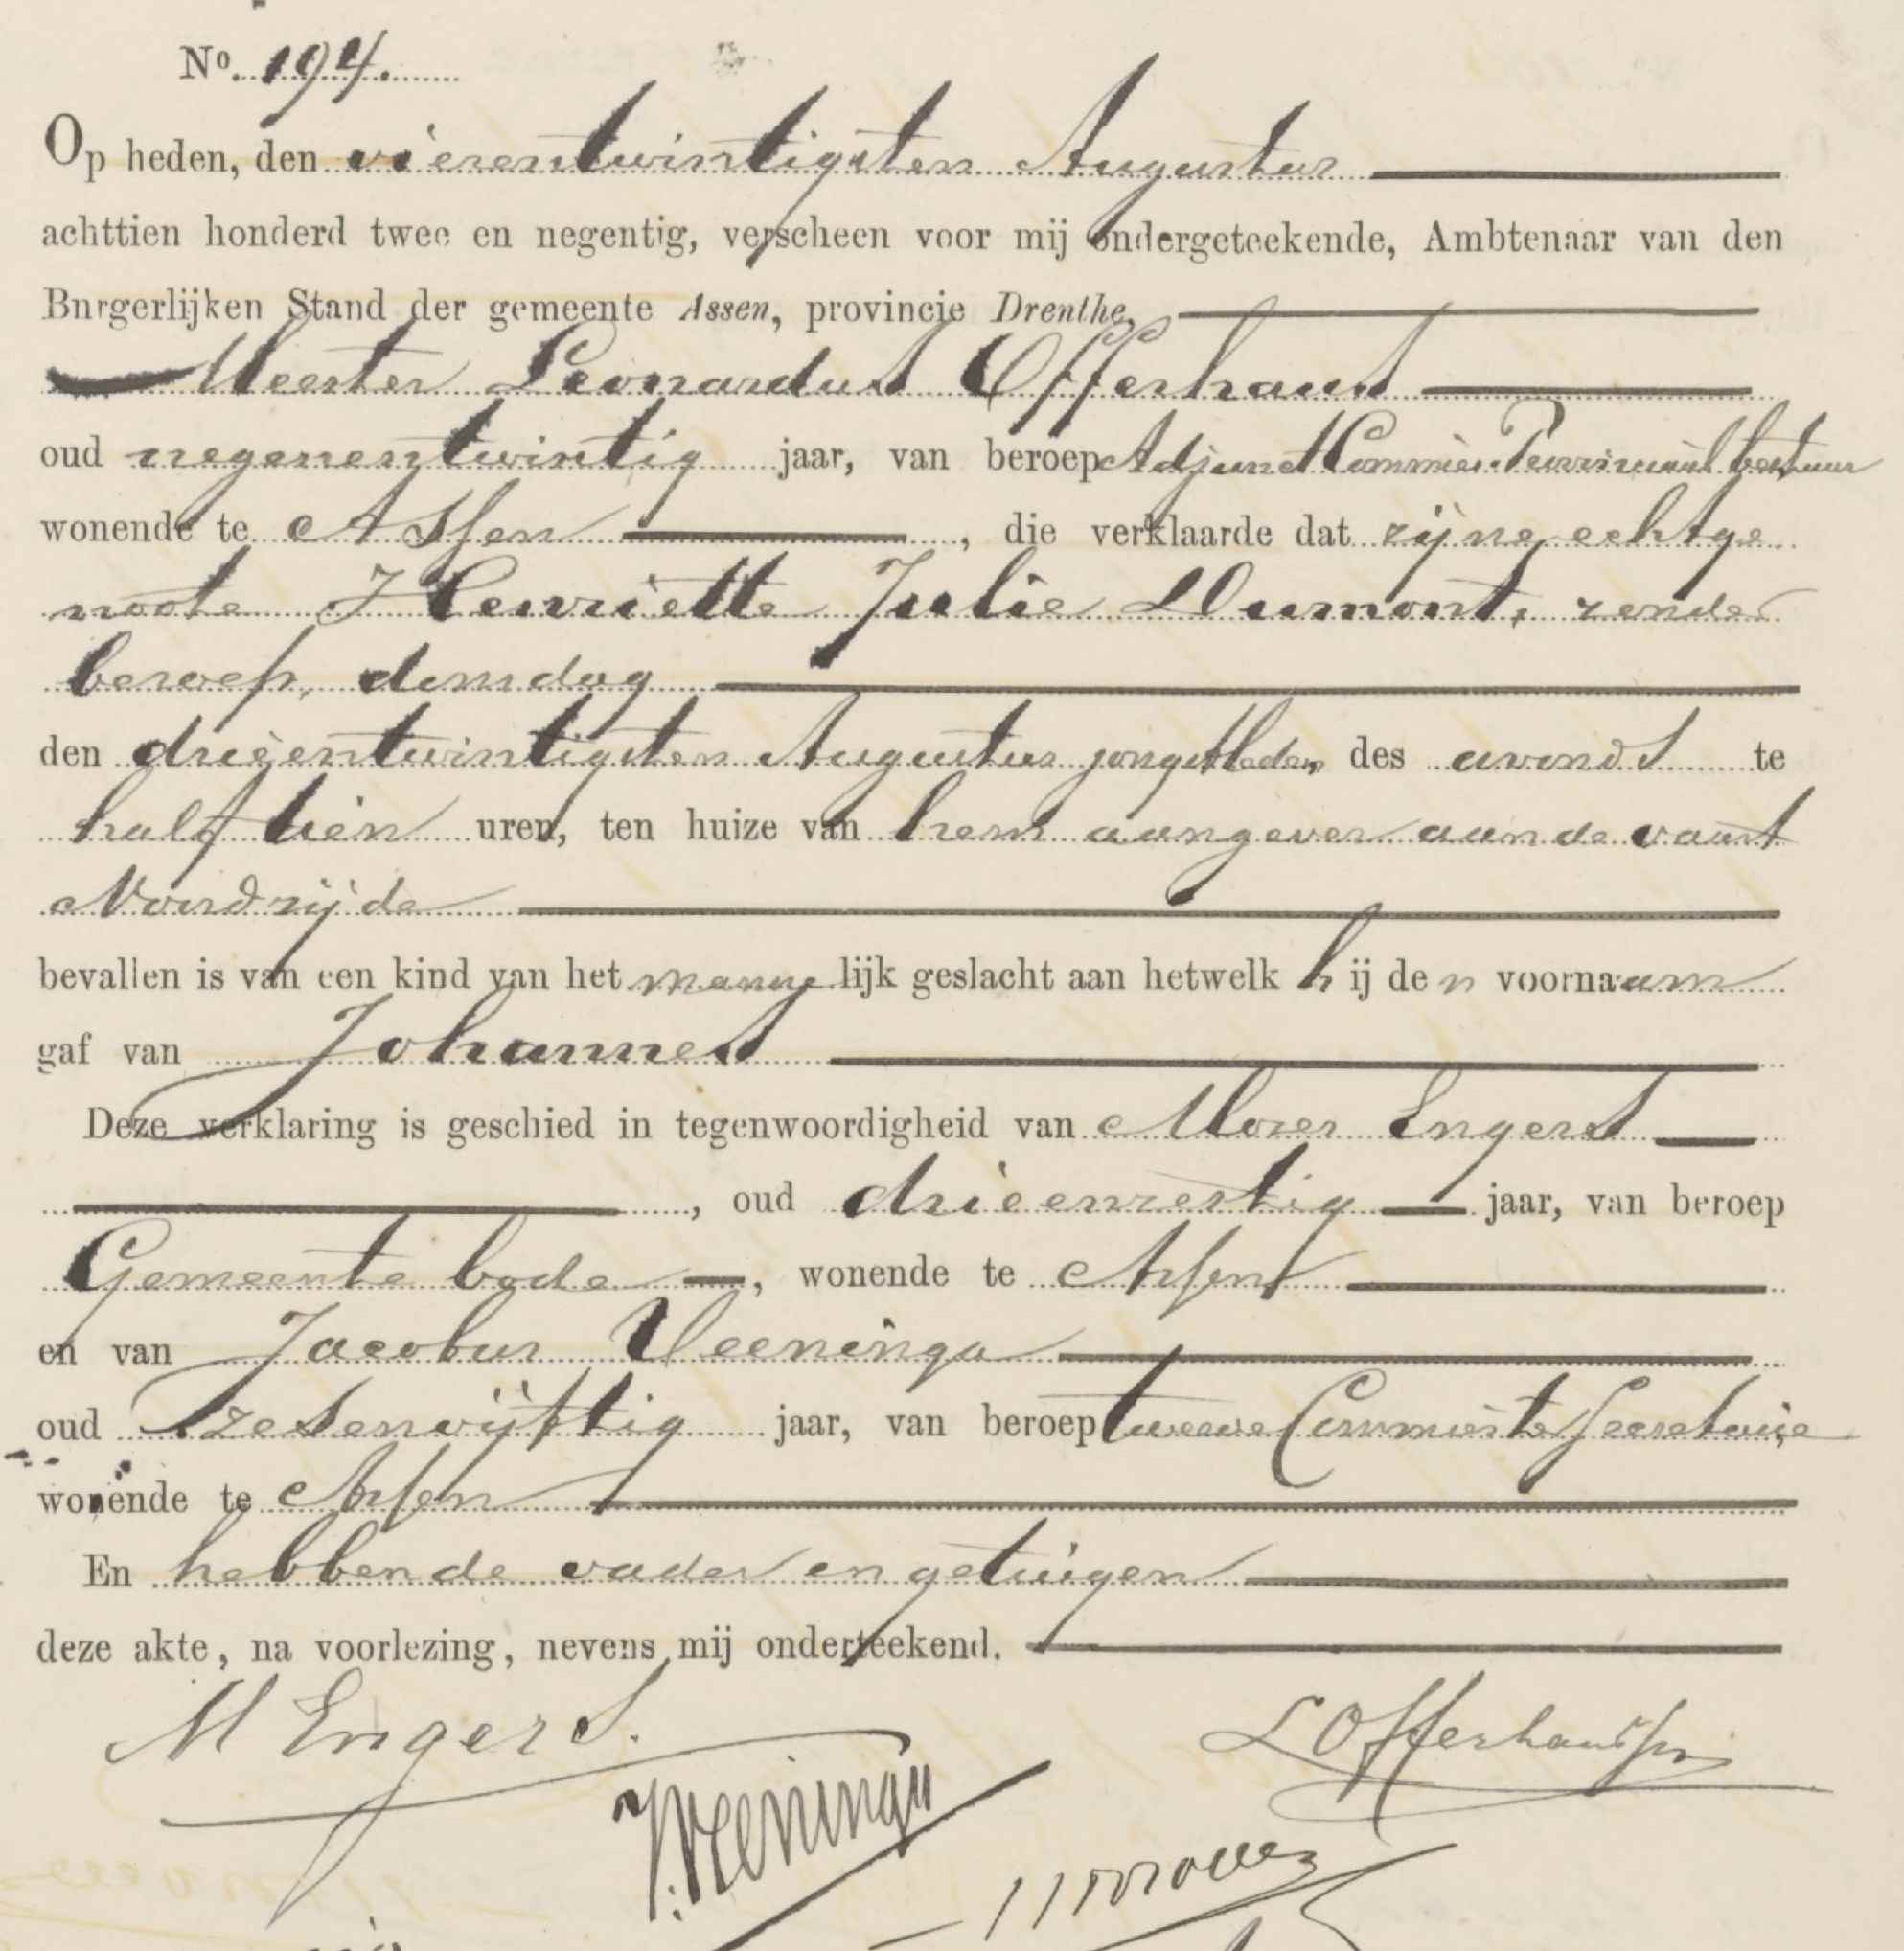 No. 194.
Op heden, den vierentwintigsten Augustus
achttien honderd twee en negentig, verscheen voor mij ondergeteekende, Ambtenaar van den
Burgerlijken Stand der gemeente Assen, provincie Drenthe,
Meester Leonardus Offerhaus
oud negenentwintig jaar, van beroep Adjunct Commies Provinciaal bestuur
wonende te Assen, die verklaarde dat zijne echtge
noote Henriette Julie Dumont, zonder
beroep, dinsdag
den drieentwintigsten Augustus jongstleden, des avonds te
half tien uren, ten huize van hem aangever aan de vaart
Noordzijde
bevallen is van een kind van het mannelijk geslacht aan hetwelk hij den voornaam
gaf van Johannes
Deze verklaring is geschied in tegenwoordigheid van Mozes Engers
, oud drieenzestig jaar, van beroep
Gemeente bode, wonende te Assen
en van Jacobus Veeninga
oud zesenvijftig jaar, van beroep tweede Commies ter Secretarie,
wonende te Assen
En hebbende vader en getuigen
deze akte, na voorlezing, nevens mij onderteekend.
M Engers.
L Offerhaus
J. Veeninga